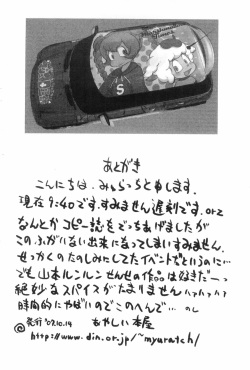 S
あとがき
こんにちは、みゅらっちと申します。
現在9:40です。すみません遅刻です。orz
なんとかコピー誌をでっちあげましたが
このふがいない出来になってしまいすみません。
せっかくのたのしみにしてたイベントだというのに…
でも山本ルンルンせんせの作品は好きだーっ
絶妙なスパイスがたまりません ハァハァハァ
時間的にやばいのでこのへんで…
発行 '02.10.14 もやしい本屋
http://www.din.or.jp/~myuratch/